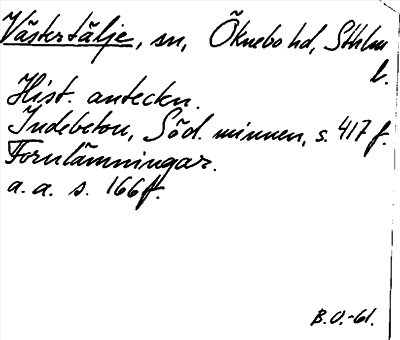 Västertälje, sn, Öknebo hd, Sthlm
l.
Hist. anteckn.
Indebetou, Söd. minnen, s. 417 f.
Fornlämningar.
a. a. s. 166 ff.
B.O.-61.